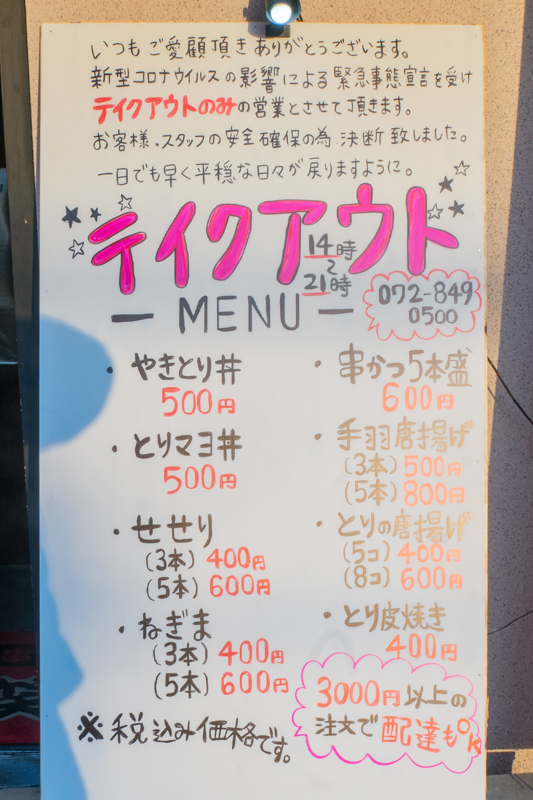 いつもご愛顧頂きありがとうございます。
新型コロナウイルスの影響による緊急事態宣言を受け
テイクアウトのみの営業とさせて頂きます。
お客様・スタッフの安全確保の為、決断致しました。
一日でも早く平穏な日々が戻りますように。
テイクアウト
14時
〜
21時
— MENU —
072-849
0500
・やきとり丼
500円
・とりマヨ丼
500円
・せせり
(3本) 400円
(5本) 600円
・ねぎま
(3本) 400円
(5本) 600円
・串かつ5本盛
600円
・手羽唐揚げ
(3本) 500円
(5本) 800円
・とりの唐揚げ
(5コ) 400円
(8コ) 600円
・とり皮焼き
400円
3000円以上の
注文で配達もOK
※税込み価格です。